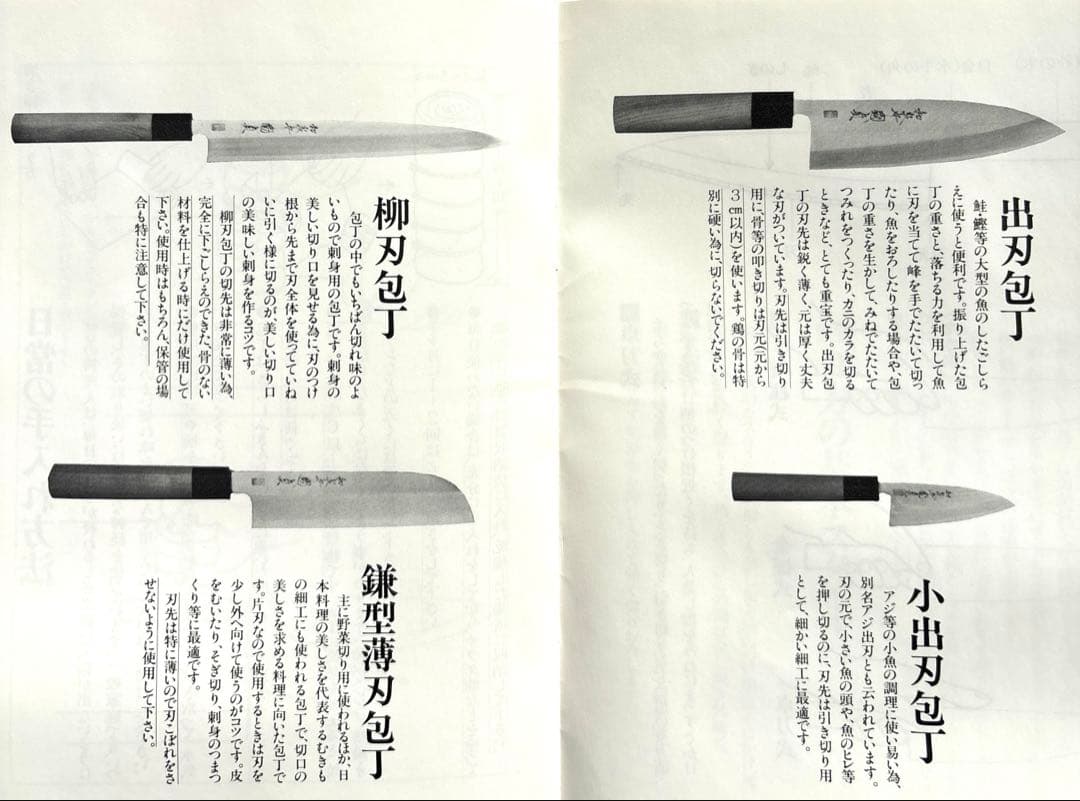 出刃包丁
鮭・鰹等の大型の魚のしたごしら
えに使うと便利です。振り上げた包
丁の重さと、落ちる力を利用して魚
に刃を当てて峰を手でたたいて切っ
たり、魚をおろしたりする場合や、包
丁の重さを生かして、みねでたたいて
つみれをつくったり、カニのカラを切る
ときなど、とても重宝です。出刃包
丁の刃先は鋭く薄く、元は厚く丈夫
な刃がついています。刃先は引き切り
用に、骨等の叩き切りは刃元(元から
3cm以内)を使います。鶏の骨は特
別に硬い為に、切らないでください。
小出刃包丁
アジ等の小魚の調理に使い易い為、
別名アジ出刃とも云われています。
刃の元で、小さい魚の頭や、魚のヒレ等
を押し切るのに、刃先は引き切り用
として、細かい細工に最適です。
柳刃包丁
包丁の中でもいちばん切れ味のよ
いもので刺身用の包丁です。刺身の
美しい切り口を見せる為に、刃のつけ
根から先まで刃全体を使ってていね
いに引く様に切るのが美しい切り口
の美味しい刺身を作るコツです。
柳刃包丁の切先は非常に薄い為、
完全に下ごしらえのできた、骨のない
材料を仕上げる時にだけ使用して
下さい。使用時はもちろん、保管の場
合も特に注意して下さい。
鎌型薄刃包丁
主に野菜切り用に使われるほか、日
本料理の美しさを代表するむきも
の細工にも使われる包丁で、切口の
美しさを求める料理に向いた包丁で
す。片刃なので使用するときは刃を
少し外へ向けて使うのがコツです。皮
をむいたり、そぎ切り、刺身のつまつ
くり等に最適です。
刃先は特に薄いので刃こぼれをさ
せないように使用して下さい。